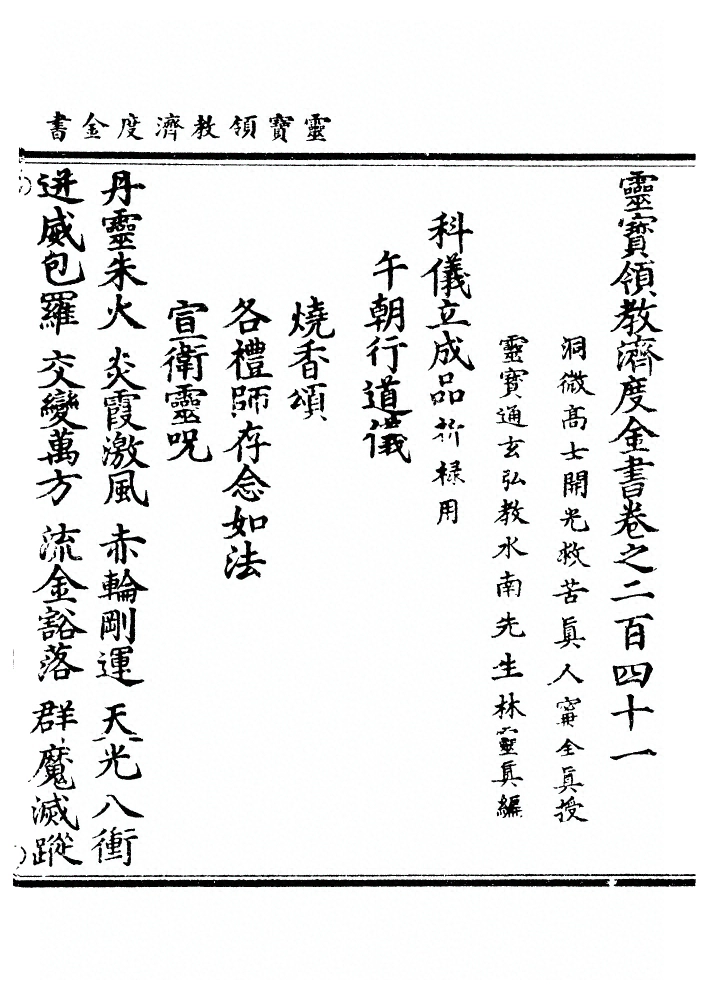 靈寶領教濟度金書
靈寶領教濟度金書卷之二百四十一
洞微高士開光救苦眞人甯全眞授
靈寶通玄弘教水南先生林靈眞編
科儀立成品祈禄用
午朝行道儀
燒香頌
各禮師存念如法
宣衛靈呪
丹靈朱火 炎霞激風 赤輪剛運 天光八衝
迸威包羅 交變萬方 流金豁落 群魔滅蹤